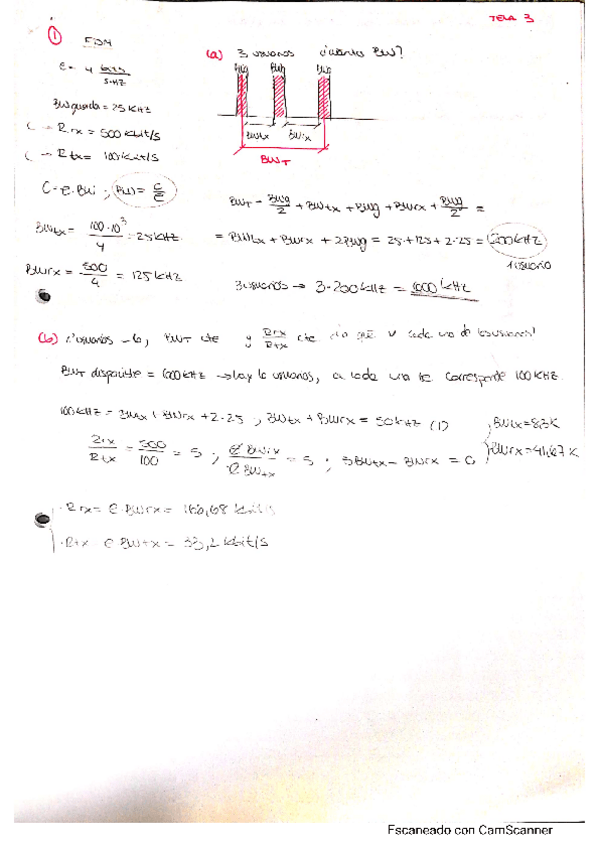 TEMA 3
① FDM
e = 4 bits/s·Hz
BWguarda = 25 KHz
Rrx = 500 kbit/s
Rtx = 100 kbit/s
C = e·BW ; BW = C/e
BWtx = 100·10³/4 = 25 KHz
BWrx = 500/4 = 125 KHz
(a) 3 usuarios ¿cuánto BW?
BWg BWg BWg
BWtx BWrx
BWT
BWT = BWg/2 + BWtx + BWg + BWrx + BWg/2 =
= BWtx + BWrx + 2BWg = 25+125+2·25 = 200 kHz
1 usuario
3 usuarios → 3·200 kHz = 600 kHz
(b) usuarios = 6, BWT cte y Rrx/Rtx cte cada uno de los usuarios?
BWT disponible = 600 kHz → hay 6 usuarios, a cada uno le corresponde 100 KHz.
100 kHz = BWtx + BWrx + 2·25 ; BWtx + BWrx = 50 kHz (1)
Rrx/Rtx = 500/100 = 5 ; e BWrx/e BWtx = 5 ; 5BWtx - BWrx = 0
BWtx = 8,3 K
BWrx = 41,67 K
· Rrx = e·BWrx = 166,68 kbit/s
· Rtx = e·BWtx = 33,2 kbit/s
Escaneado con CamScanner